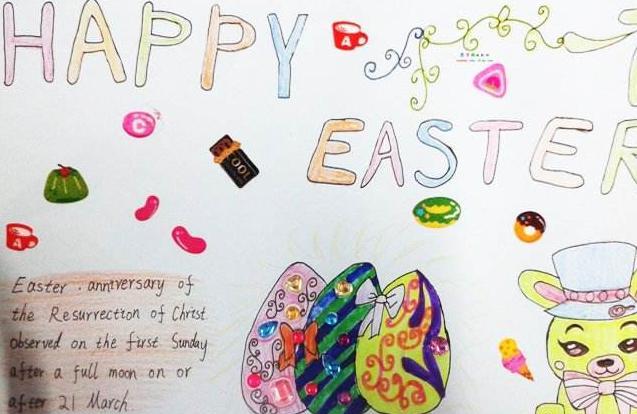 HAPPY
A
EASTER
C
100
A
Easter . anniversary of
the Resurrection of Christ
observed on the first Sunday
after a full moon on or
after 21 March